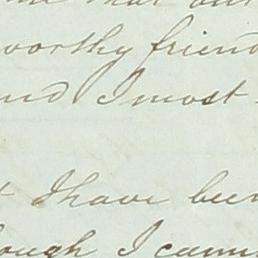 that our
worthy friend
and I most
I have been
though I cann